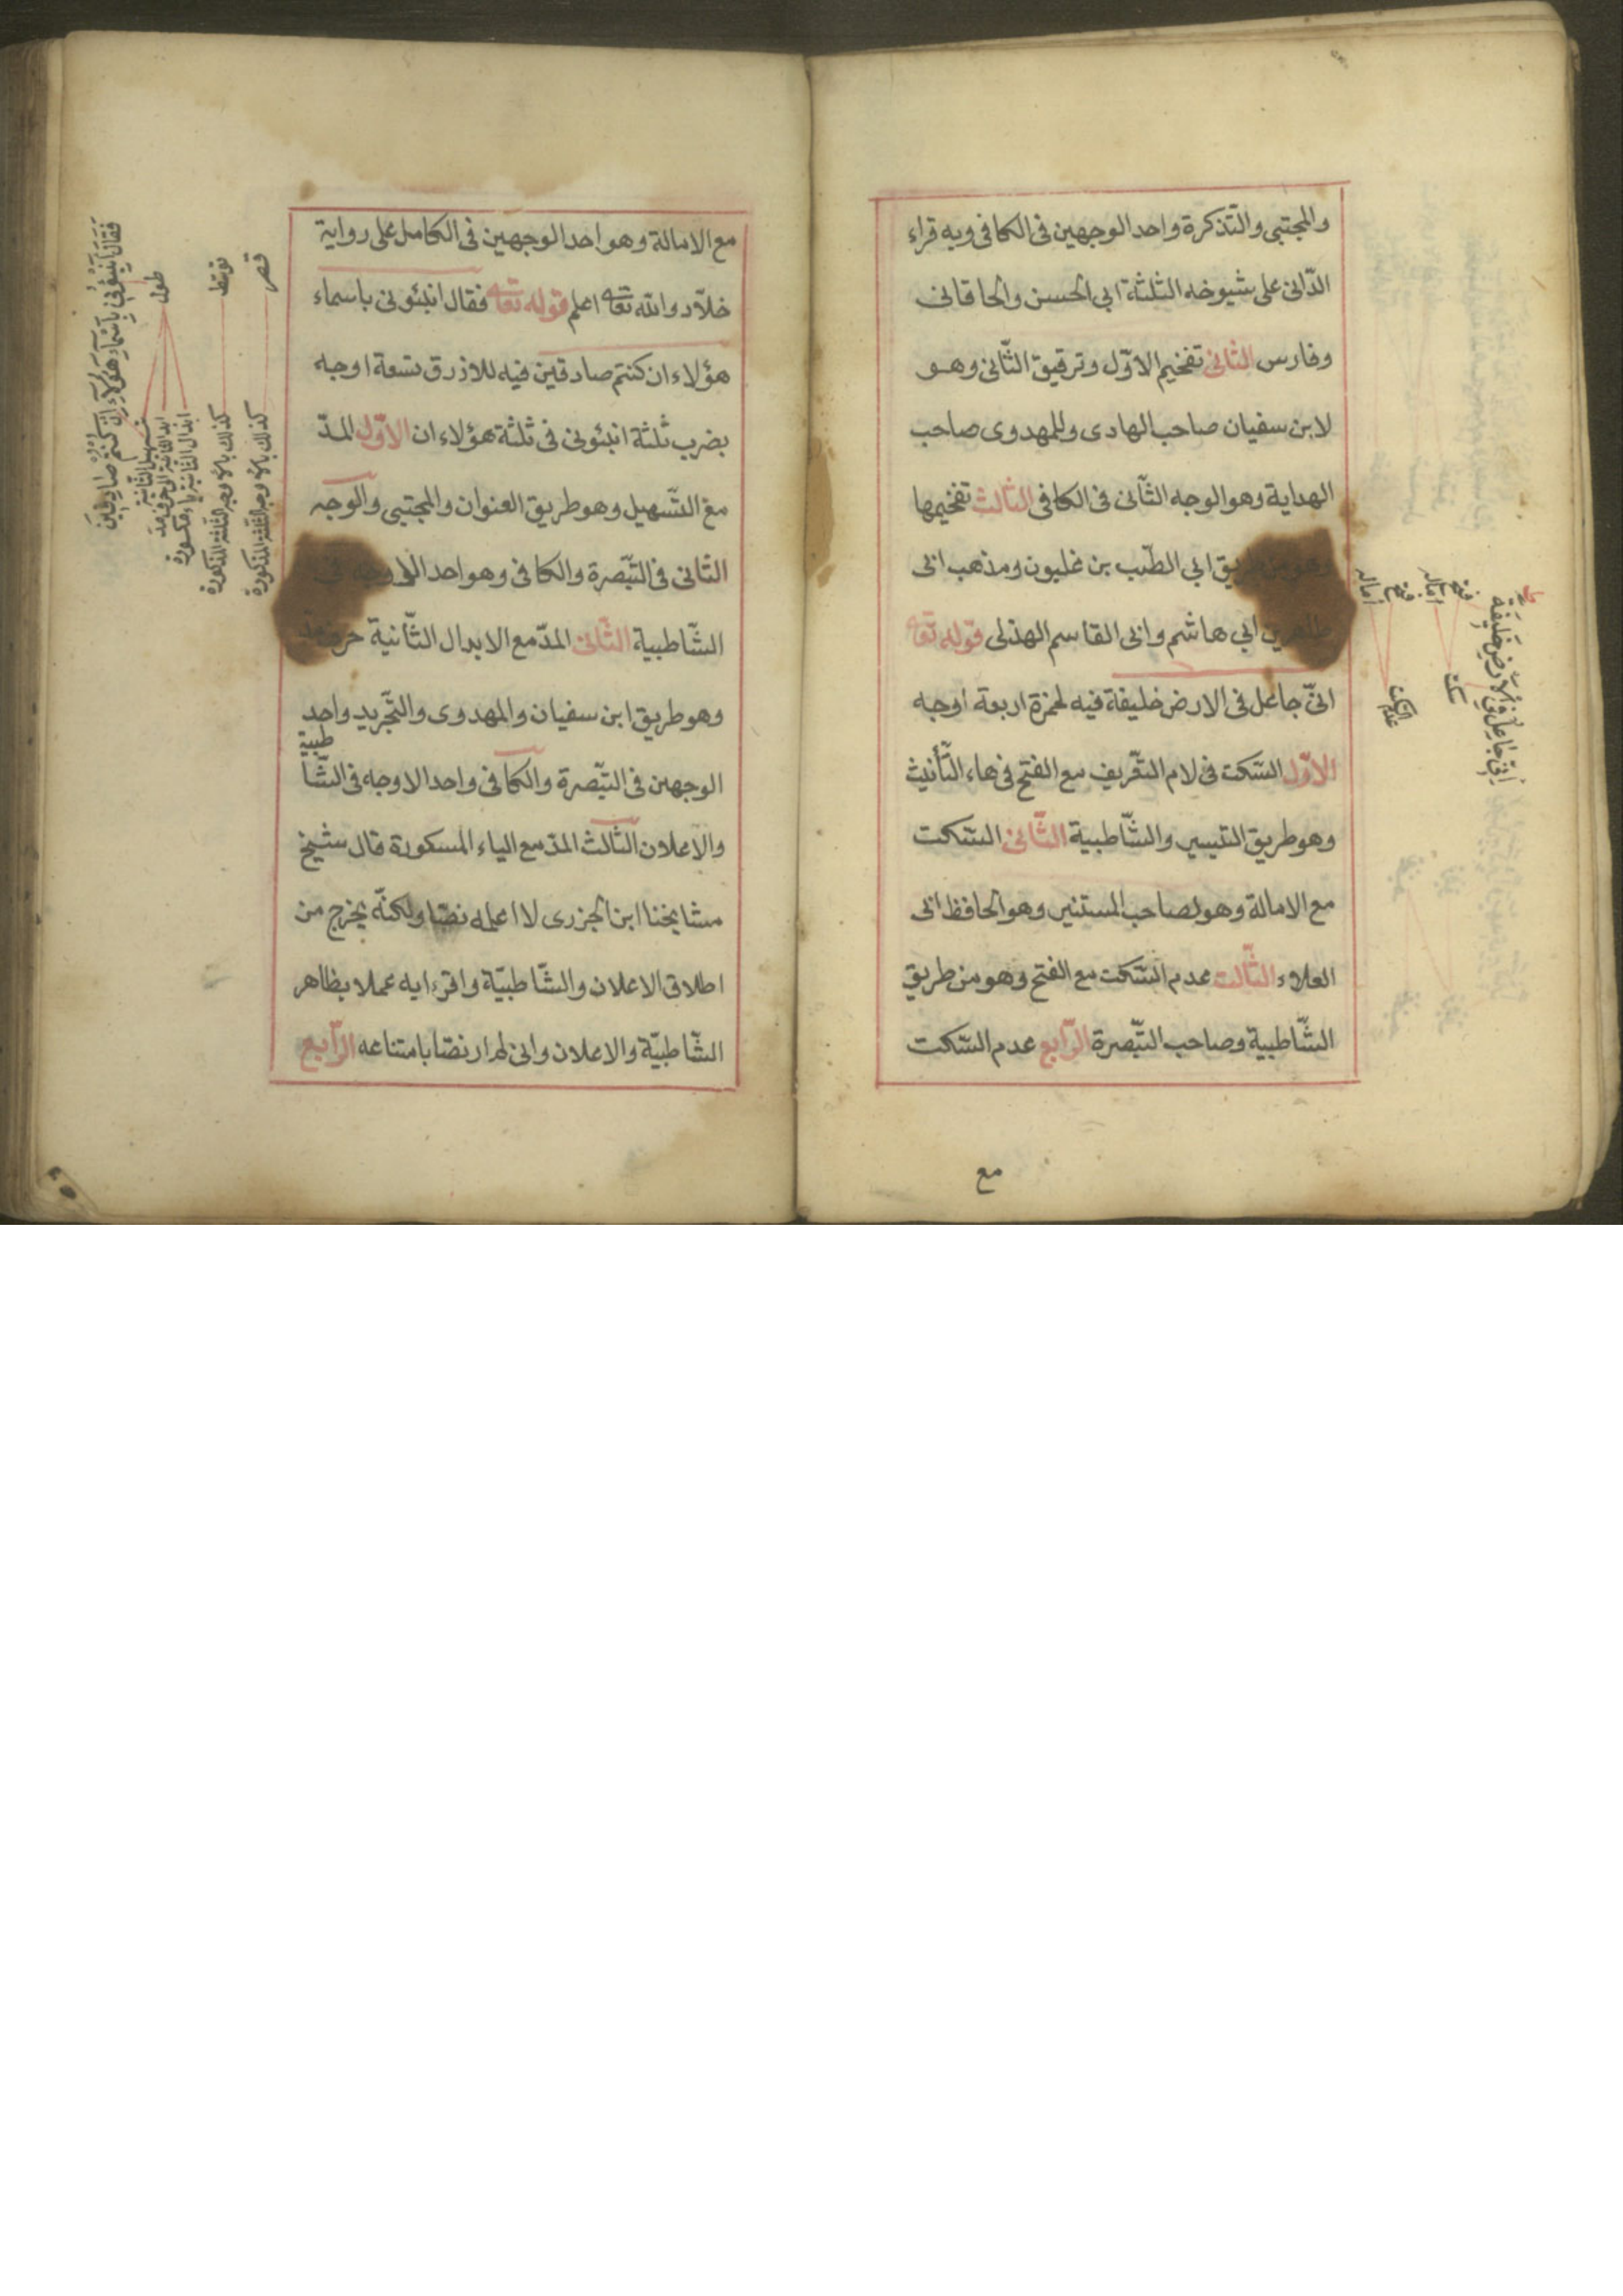 والمجتبى والتّذكرة واحد الوجهين فى الكافى وبه قراء
الدّانى على شيوخه الثلثة ابى الحسن والخاقانى
وفارس الثانى تفخيم الاوّل وترقيق الثّانى وهو
لابن سفيان صاحب الهادى وللمهدوى صاحب
الهداية وهو الوجه الثّانى فى الكافى الثالث تفخيمها
وهو من طريق ابى الطّيب بن غلبون ومذهب ابى
ابى هاشم وابى القاسم الهذلى قوله تعا
انّى جاعل فى الارض خليفة فيه لحمزة اربعة اوجه
الاوّل السّكت فى لام التّعريف مع الفتح فى هاء التّأنيث
وهو طريق التيسير والشّاطبية الثّانى السّكت
مع الامالة وهو لصاحب المستنير وهو الحافظ ابى
العلاء الثّالث عدم السّكت مع الفتح وهو من طريق
الشّاطبية وصاحب التّبصرة الرّابع عدم السّكت
مع
انى جاعل فى الارض خليفة
فتح
امالة
فتح
امالة
سكت
عدم السكت
مع الامالة وهو احد الوجهين فى الكامل على رواية
خلّاد والله تعا اعلم قوله تعا فقال انبئونى باسماء
هؤلاء ان كنتم صادقين فيه للازرق تسعة اوجه
بضرب ثلثة انبئونى فى ثلثة هؤلاء ان الاوّل المدّ
مع التّسهيل وهو طريق العنوان والمجتبى والوجه
الثانى فى التّبصرة والكافى وهو احد الاوجه فى
الشّاطبية الثّانى المدّ مع الابدال الثّانية حرف مد
وهو طريق ابن سفيان والمهدوى والتّجريد واحد
الوجهين فى التبّصرة والكافى واحد الاوجه فى الشّا
طبية
والاعلان الثّالث المدّ مع الياء المسكورة قال شيخ
مشايخنا ابن الجزرى لا اعلمه نصّا ولكنّه يخرج من
اطلاق الاعلان والشّاطبيّة واقرء ايه عملا بظاهر
الشّاطبيّة والاعلان وانى لم ار نصّا بامتناعه الرّابع
فقال انبئونى باسماء هؤلاء ان كنتم صادقين
طول
توسط
قصر
تسهيل الثانية
ابدال الثانية الى حرف مد
ابدال الثانية ياء مكسورة
كذلك بالاوجه الثلثة المذكورة
كذلك بالاوجه الثلثة المذكورة